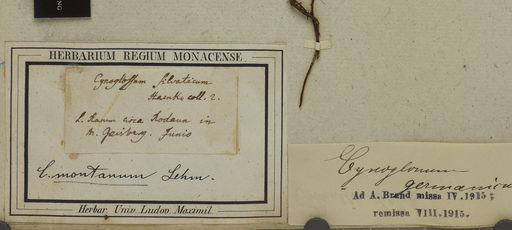 HERBARIUM REGIUM MONACENSE.
Cynoglossum silvaticum
Haenke coll. 2.
L. Rarum circa Rodaun in
m. Geisberg. Junio
C. montanum Lehm.
Herbar. Univ. Ludov. Maximil.
Cynoglossum
germanicum
Ad A. Brand missa IV. 1915;
remissa VIII. 1915.